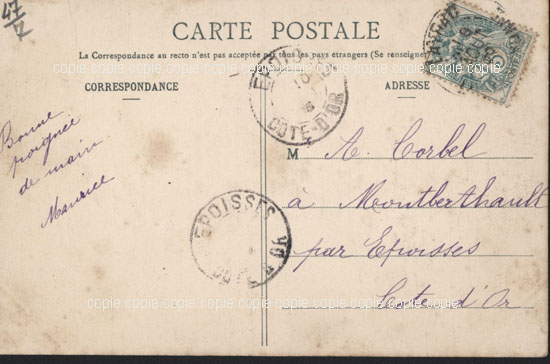 47
CARTE POSTALE
La Correspondance au recto n'est pas acceptée par tous les pays étrangers (Se renseigner
CORRESPONDANCE
ADRESSE
Bonne
poignée
de main
Maurice
M A. Corbel
à Montberthault
par Epoisses
Côte d'Or
EPOISSES
COTE-D'OR
EPOISSES
COTE D'OR
copie copie copie copie copie copie copie copie copie
copie copie copie copie copie copie copie copie copie
copie copie copie copie copie copie copie copie copie